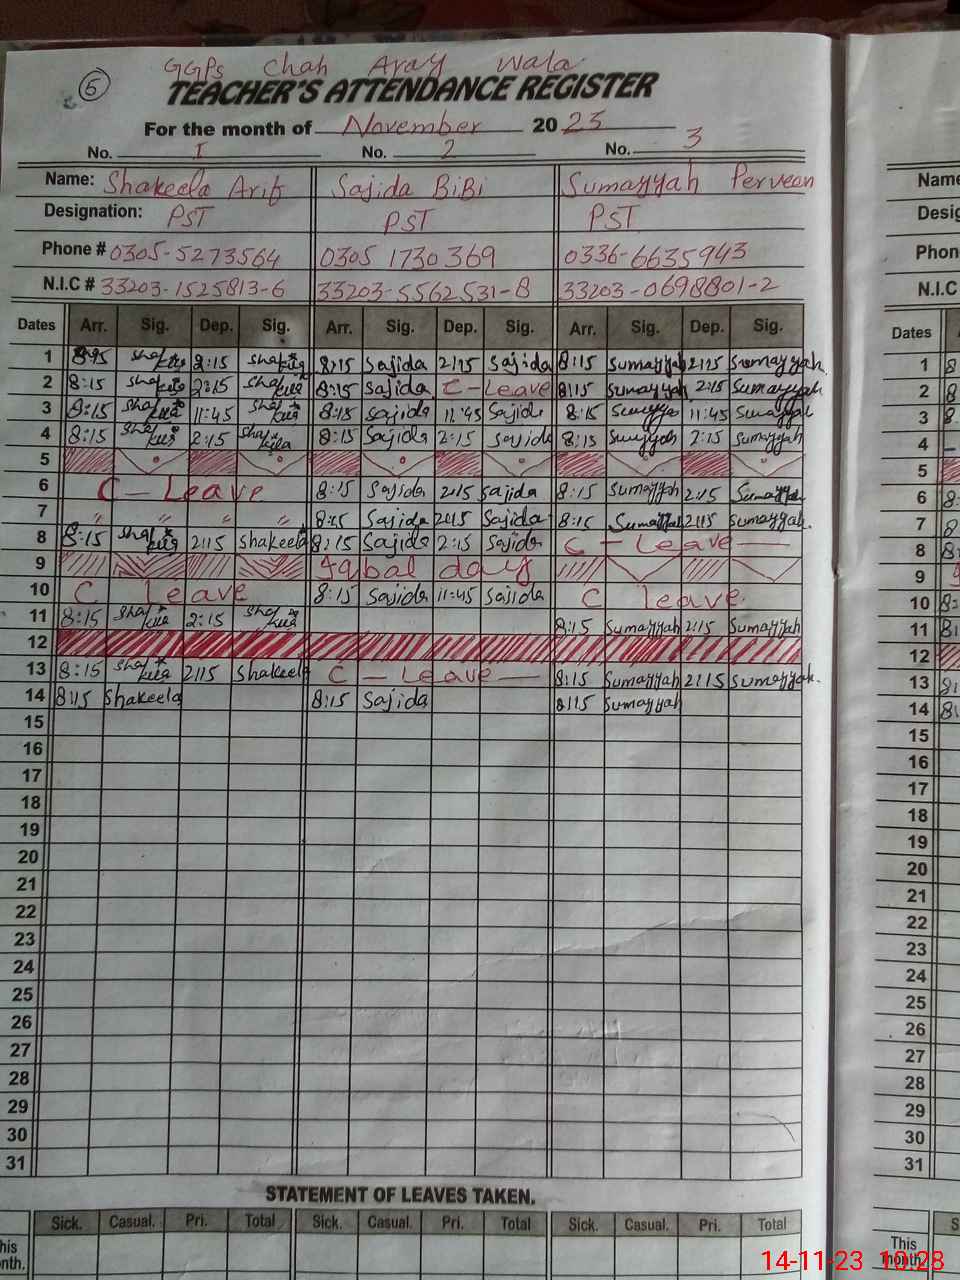 5
GGPs Chah Aray Wala
TEACHER'S ATTENDANCE REGISTER
For the month of November 20 23
No. I No. 2 No. 3
Name: Shakeela Arif Sajida BiBi Sumayyah Perveen Name
Designation: PST PST PST
Phone # 0305-5273564 0305 1730369 0336-6635943 Phon
N.I.C # 33203-1525813-6 33203-5562531-8 33203-0698801-2 N.I.C
Dates Arr. Sig. Dep. Sig. Arr. Sig. Dep. Sig. Arr. Sig. Dep. Sig. Dates
1 8:15 Shakeela 2:15 Shakeela 8:15 Sajida 2:15 Sajida 8:15 Sumayyah 2:15 Sumayyah 1 8
2 8:15 Shakeela 2:15 Shakeela 8:15 Sajida C-Leave 8:15 Sumayyah 2:15 Sumayyah 2
3 8:15 Shakeela 11:45 Shakeela 8:15 Sajida 11:45 Sajida 8:15 Sumayya 11:45 Sumayyah 3
4 8:15 Shakeela 2:15 Shakeela 8:15 Sajida 2:15 Sajida 8:15 Sumyyah 2:15 Sumayyah 4
5 5
6 C - Leave 8:15 Sajida 2:15 Sajida 8:15 Sumayyah 2:15 Sumayyah 6
7 " " " " 8:15 Sajida 2:15 Sajida 8:15 Sumayyah 2:15 Sumayyah. 7
8 8:15 Shakeela 2:15 Shakeela 8:15 Sajida 2:15 Sajida C - Leave 8
9 Iqbal day 9
10 C Leave 8:15 Sajida 11:45 Sajida C leave. 10
11 8:15 Shakeela 2:15 Shakeela 8:15 Sumayyah 2:15 Sumayyah 11
12 12
13 8:15 Shakeela 2:15 Shakeela C - Leave 8:15 Sumayyah 2:15 Sumayyah. 13
14 8:15 Shakeela 8:15 Sajida 8:15 Sumayyah 14
15 15
16 16
17 17
18 18
19 19
20 20
21 21
22 22
23 23
24 24
25 25
26 26
27 27
28 28
29 29
30 30
31 31
STATEMENT OF LEAVES TAKEN.
Sick. Casual. Pri. Total Sick. Casual. Pri. Total Sick. Casual. Pri. Total S
his This
nth. month.
14-11-23 10:28